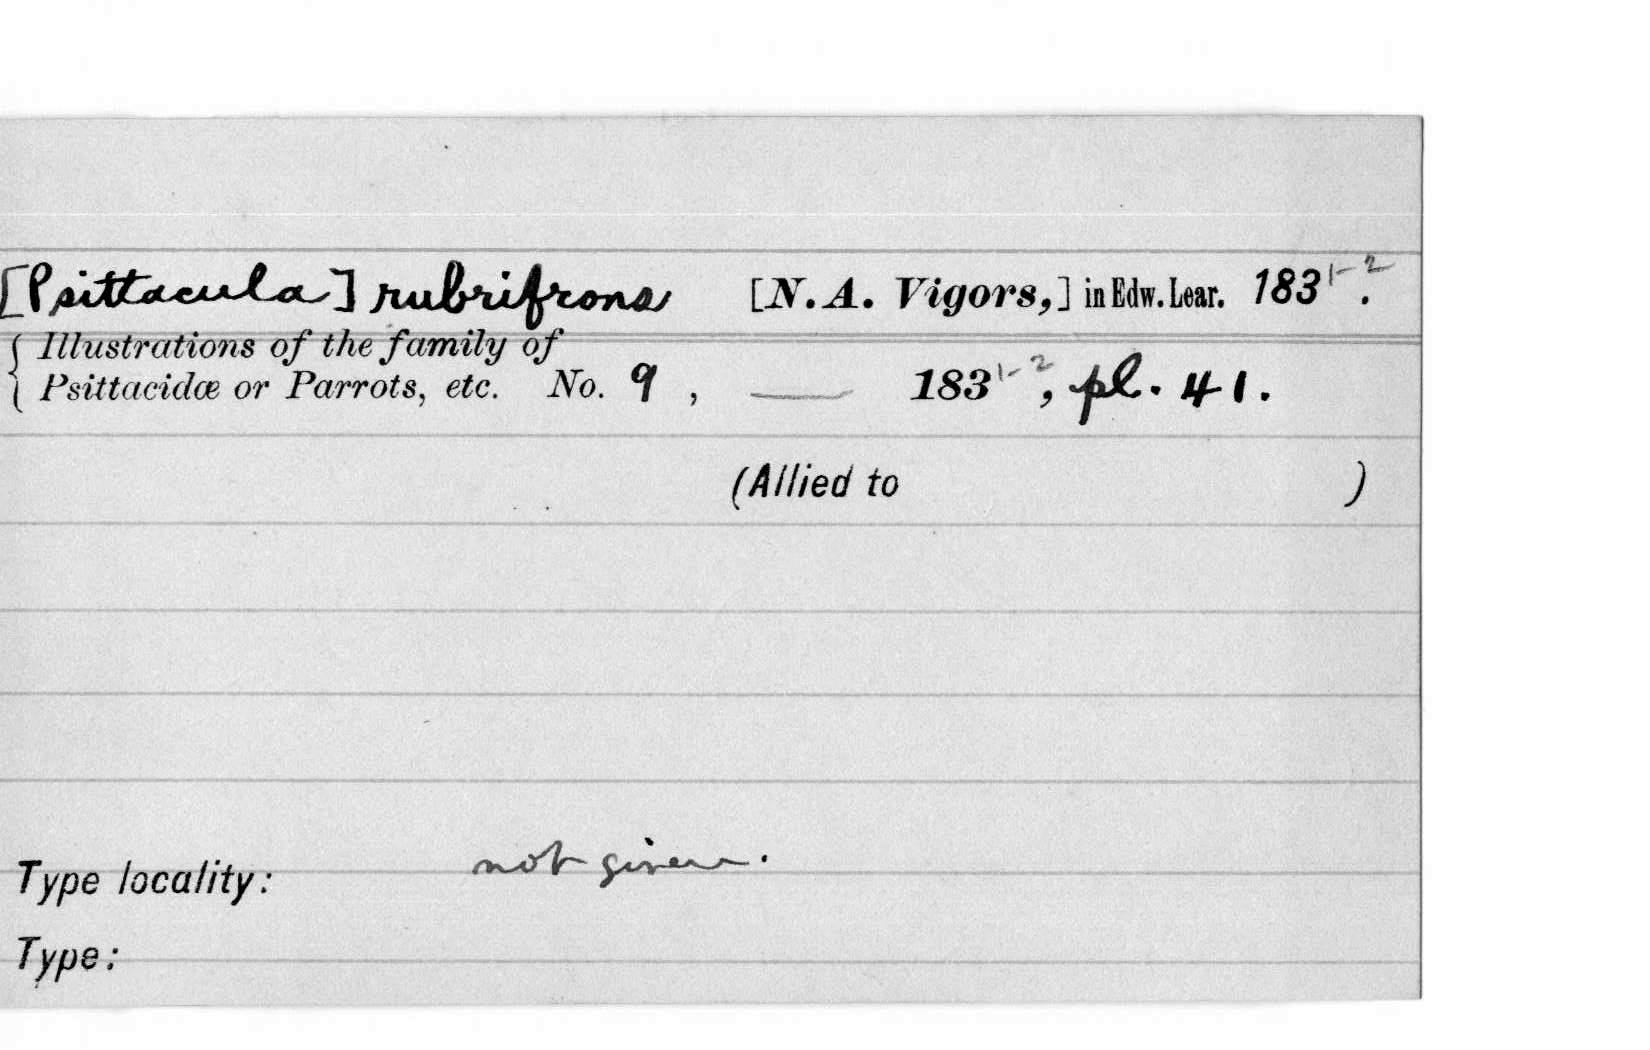 [Psittacula] rubrifrons [N. A. Vigors,] in Edw. Lear. 1831-2.
Illustrations of the family of
Psittacidæ or Parrots, etc. No. 9, — 1831-2, pl. 41.
(Allied to )
Type locality: not given.
Type: